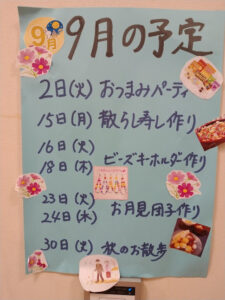 9月
9月の予定
2日(火) おつまみパーティ
15日(月) 散らし寿し作り
16日(火)
18日(木) ビーズキーホルダー作り
23日(火)
24日(水) お月見団子作り
30日(火) 秋のお散歩